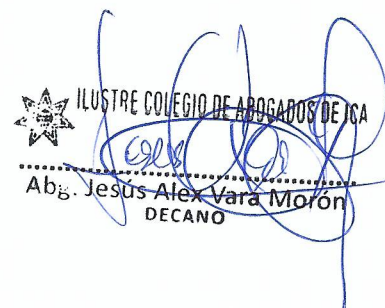 ILUSTRE COLEGIO DE ABOGADOS DE ICA
Abg. Jesús Alex Vara Morón
DECANO